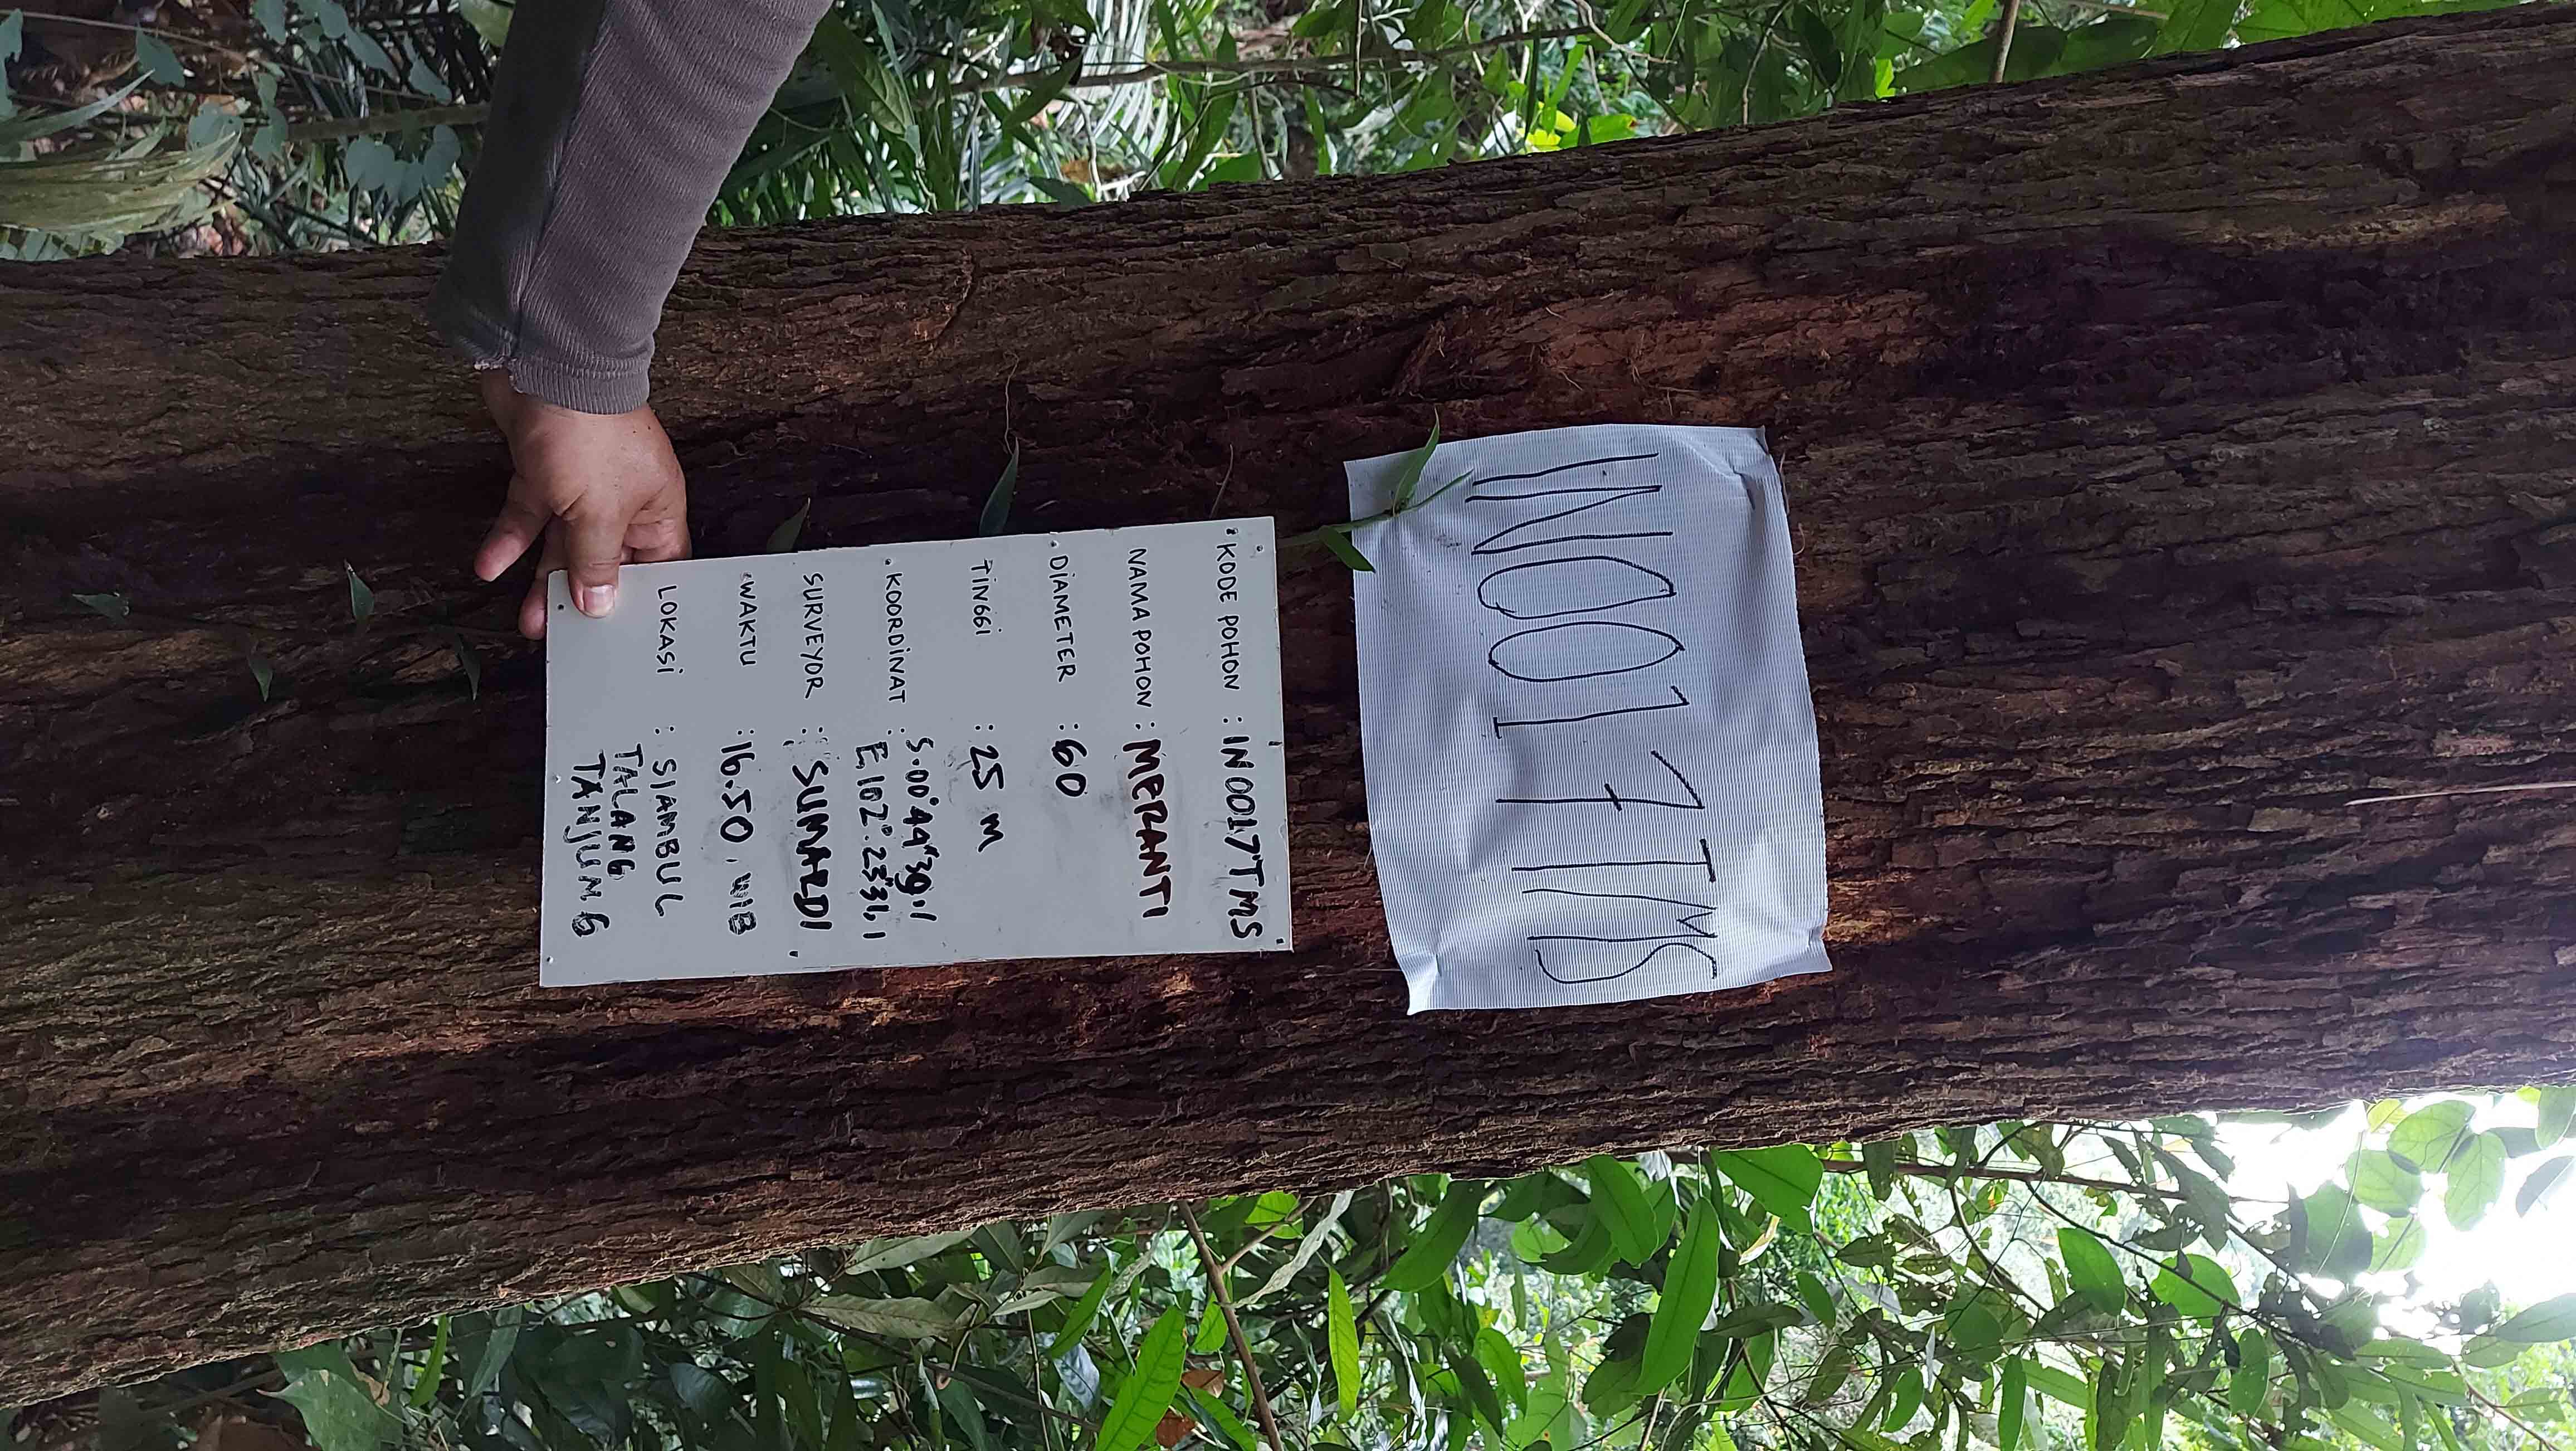 IN0017TMS
KODE POHON : IN0017TMS
NAMA POHON : MERANTI
DIAMETER : 60
TINGGI : 25 M
KOORDINAT : S.00°44"39.1
E.102°.23'31,1
SURVEYOR : SUMARDI
WAKTU : 16.50, WIB
LOKASI : SIAMBUL
TALANG
TANJUNG